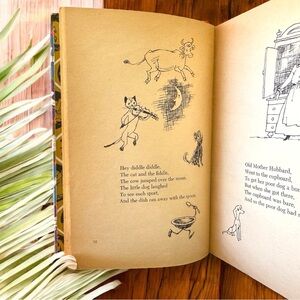 Hey diddle diddle,
The cat and the fiddle,
The cow jumped over the moon.
The little dog laughed
To see such sport,
And the dish ran away with the spoon.
Old Mother Hubbard,
Went to the cupboard,
To get her poor dog a
But when she got there,
The cupboard was bare,
And so the poor dog had